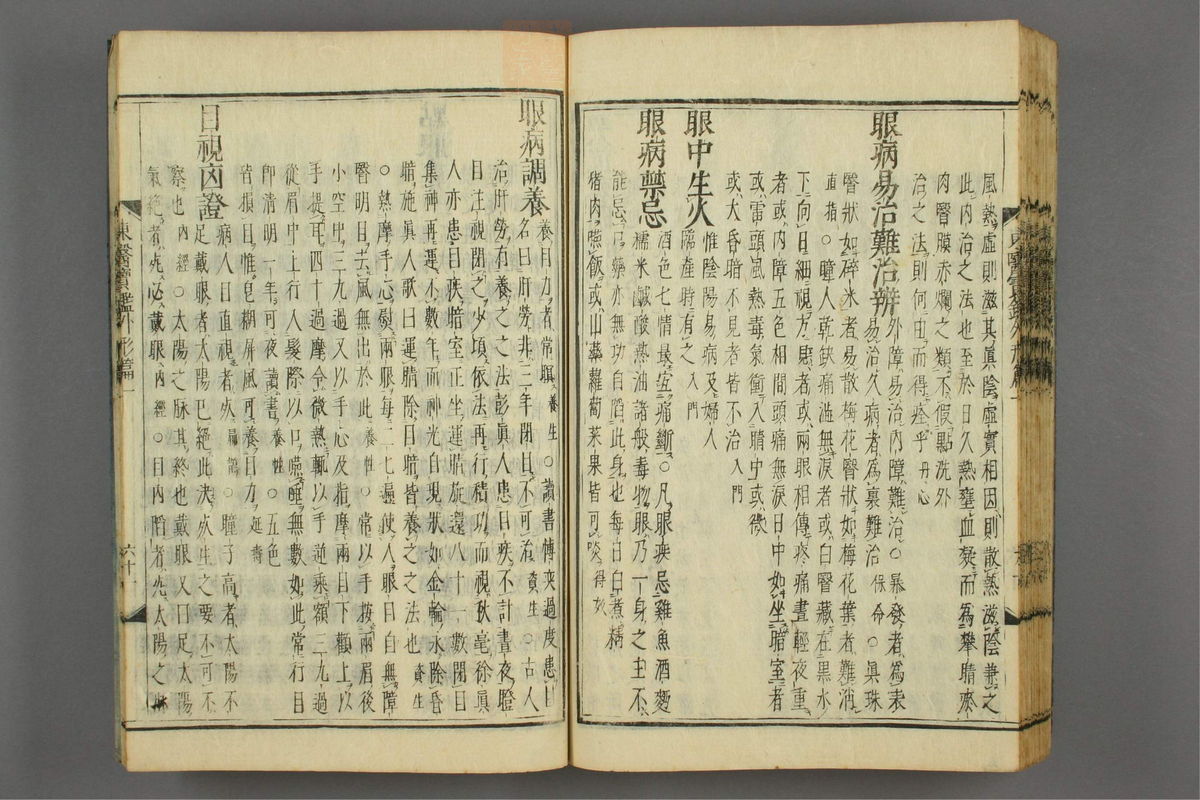 風熱虛則滋其眞陰虛實相因則散熱滋陰兼之
此內治之法也至於日久熱壅血凝而爲攀睛瘀
肉瞖膜赤爛之類不假點洗外
治之法則何由而得痊乎丹心
眼病易治難治辨
外障易治內障難治○暴發者爲表
易治久病者爲裏難治保命○眞珠
瞖狀如碎米者易散梅花瞖狀如梅花葉者難消
直指○瞳人乾缺痛澁無淚者或白瞖藏在黑水
下向日細視方見者或兩眼相傳疼痛晝輕夜重
者或內障五色相間頭痛無淚日中如坐暗室者
或雷頭風熱毒氣衝入睛中或微
或大昏暗不見者皆不治入門
眼中生火
惟陰陽易病及婦人
臨產時有之入門
眼病禁忌
酒色七情最宜痛斷○凡眼疾忌雞魚酒麪
糯米鹹酸熱油諸般毒物眼乃一身之主不
能忌口藥亦無功自陷此身也每日白煮精
猪肉嚥飯或山藥蘿蔔菜果皆可啖得效
眼病調養
養目力者常瞑養生○讀書博奕過度患目
名曰肝勞非三年閉目不可治資生○古人
治肝勞有養之之法彭眞人患目疾不計晝夜瞪
目注視閉之少頃依法再行積功而視秋毫徐眞
人亦患目疾暗室正坐運睛旋還八十一數閉目
集神再運不數年而神光自現狀如金輪永除昏
暗施眞人歌曰運睛除目暗皆養之之法也資生
○熱摩手心熨兩眼每二七遍使人眼目自無障
瞖明目去風無出於此養性○常以手按兩眉後
小空中三九過又以手心及指摩兩目下顴上以
手提耳四十過摩令微熱輒以手逆乘額三九過
從眉中上行入髮際以口嚥唾無數如此常行目
卽清明一年可夜讀書養性○五色
皆損目惟皂糊屛風可養目力延壽
目視凶證
病人目直視者死扁鵲○瞳子高者太陽不
足戴眼者太陽已絕此決死生之要不可不
察也內經○太陽之脉其終也戴眼又曰足太陽
氣絕者死必戴眼內經○目內陷者死太陽之
東醫寶鑑外形篇一
六十一